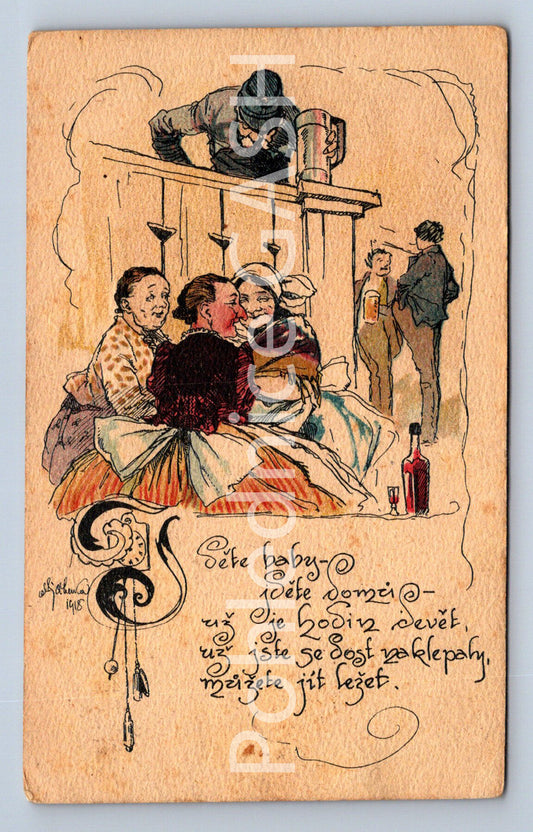 Jděte baby-
jděte domů-
už je hodin devět,
už jste se dost naklepaly,
můžete jít ležet.
1918
PohledniceGASH